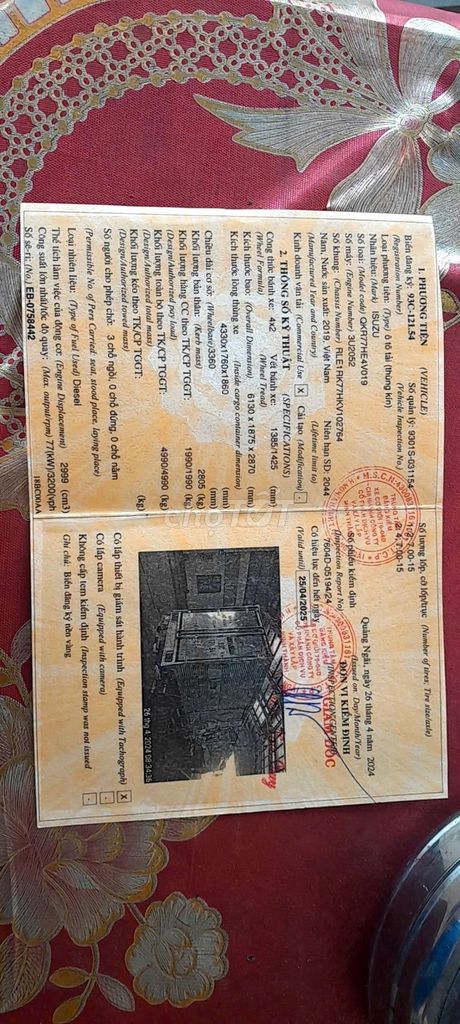 1. PHƯƠNG TIỆN (VEHICLE)
Biển đăng ký: 93C-121.54 Số quản lý: 9301S-031154
(Registration Number) (Vehicle Inspection No.)
Loại phương tiện: (Type) ô tô tải (thùng kín)
Nhãn hiệu: (Mark) ISUZU
Số loại: (Model code) QKR77HE4V019
Số máy: (Engine Number) 3U2052
Số khung: (Chassis Number) RLE1RK77HKV102764
Năm, Nước sản xuất: 2019, Việt Nam Niên hạn SD: 2044
(Manufactured Year and Country) (Lifetime limit to)
Kinh doanh vận tải (Commercial Use) X Cải tạo (Modification) -
2. THÔNG SỐ KỸ THUẬT (SPECIFICATIONS)
Công thức bánh xe: 4x2 Vết bánh xe: 1385/1425 (mm)
(Wheel Formula) (Wheel Tread)
Kích thước bao: (Overall Dimension) 6130 x 1875 x 2870 (mm)
Kích thước lòng thùng xe (Inside cargo container dimension)
4330x1760x1860 (mm)
Chiều dài cơ sở: (Wheelbase) 3360 (mm)
Khối lượng bản thân: (Kerb mass) 2805 (kg)
Khối lượng hàng CC theo TK/CP TGGT: 1990/1990 (kg)
(Design/Authorized pay load)
Khối lượng toàn bộ theo TK/CP TGGT: 4990/4990 (kg)
(Design/Authorized total mass)
Khối lượng kéo theo TK/CP TGGT: (kg)
(Design/Authorized towed mass)
Số người cho phép chở: 3 chỗ ngồi, 0 chỗ đứng, 0 chỗ nằm
(Permissible No. of Pers Carried: seat, stood place, laying place)
Loại nhiên liệu: (Type of Fuel Used) Diesel
Thể tích làm việc của động cơ: (Engine Displacement) 2999 (cm3)
Công suất lớn nhất/tốc độ quay: (Max. output/rpm) 77(kW)/3200vph
Số sê-ri: (No.) EB-0758442
Số lượng lốp, cỡ lốp/trục (Number of tires; Tire size/axle)
2; 7.00-15
4; 7.00-15
Số phiếu kiểm định
(Inspection Report No)
7604D-05194/24
Có hiệu lực đến hết ngày
(Valid until) 25/04/2025
Quảng Ngãi, ngày 26 tháng 4 năm 2024
(Issued on: Day/Month/Year)
ĐƠN VỊ KIỂM ĐỊNH
26 thg 4, 2024 08:34:36
Có lắp thiết bị giám sát hành trình (Equipped with Tachograph) X
Có lắp camera (Equipped with camera) -
Không cấp tem kiểm định (Inspection stamp was not issued -
Ghi chú: Biển đăng ký nền vàng
chợ TỐT